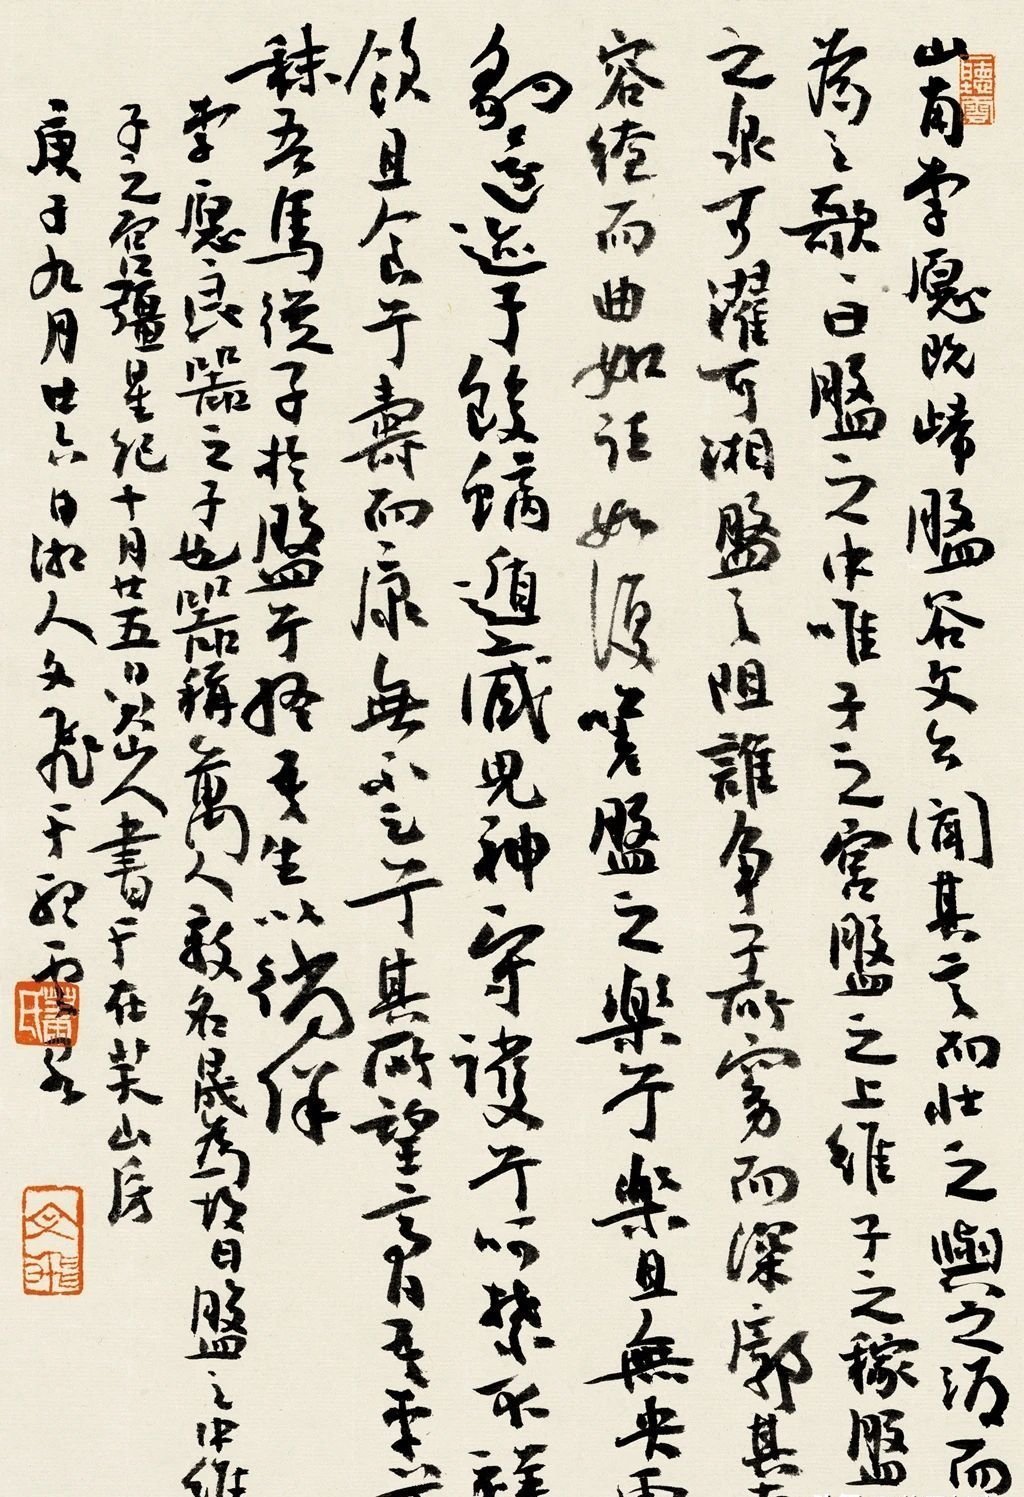 山南李愿既歸盤谷文公聞其言而壯之與之酒而
為之歌曰盤之中唯子之宮盤之上維子之稼盤
之泉可濯可湘盤之阻誰爭子所窈而深廓其有
容繚而曲如往如復嗟盤之樂兮樂且無央
豹遠迹兮蛟螭遁藏鬼神守護兮呵禁不祥
飲且食兮壽而康無不足兮其所望膏吾車兮
秣吾馬從子於盤兮終吾生以徜徉
李愿良器之子也器稱萬人敵名晟為 盤之中維
子之宮 星紀十月廿五日 山人書于在芙山房
庚子九月廿六日湘人文飛于聽雲
聽雲
蕭氏
文飛